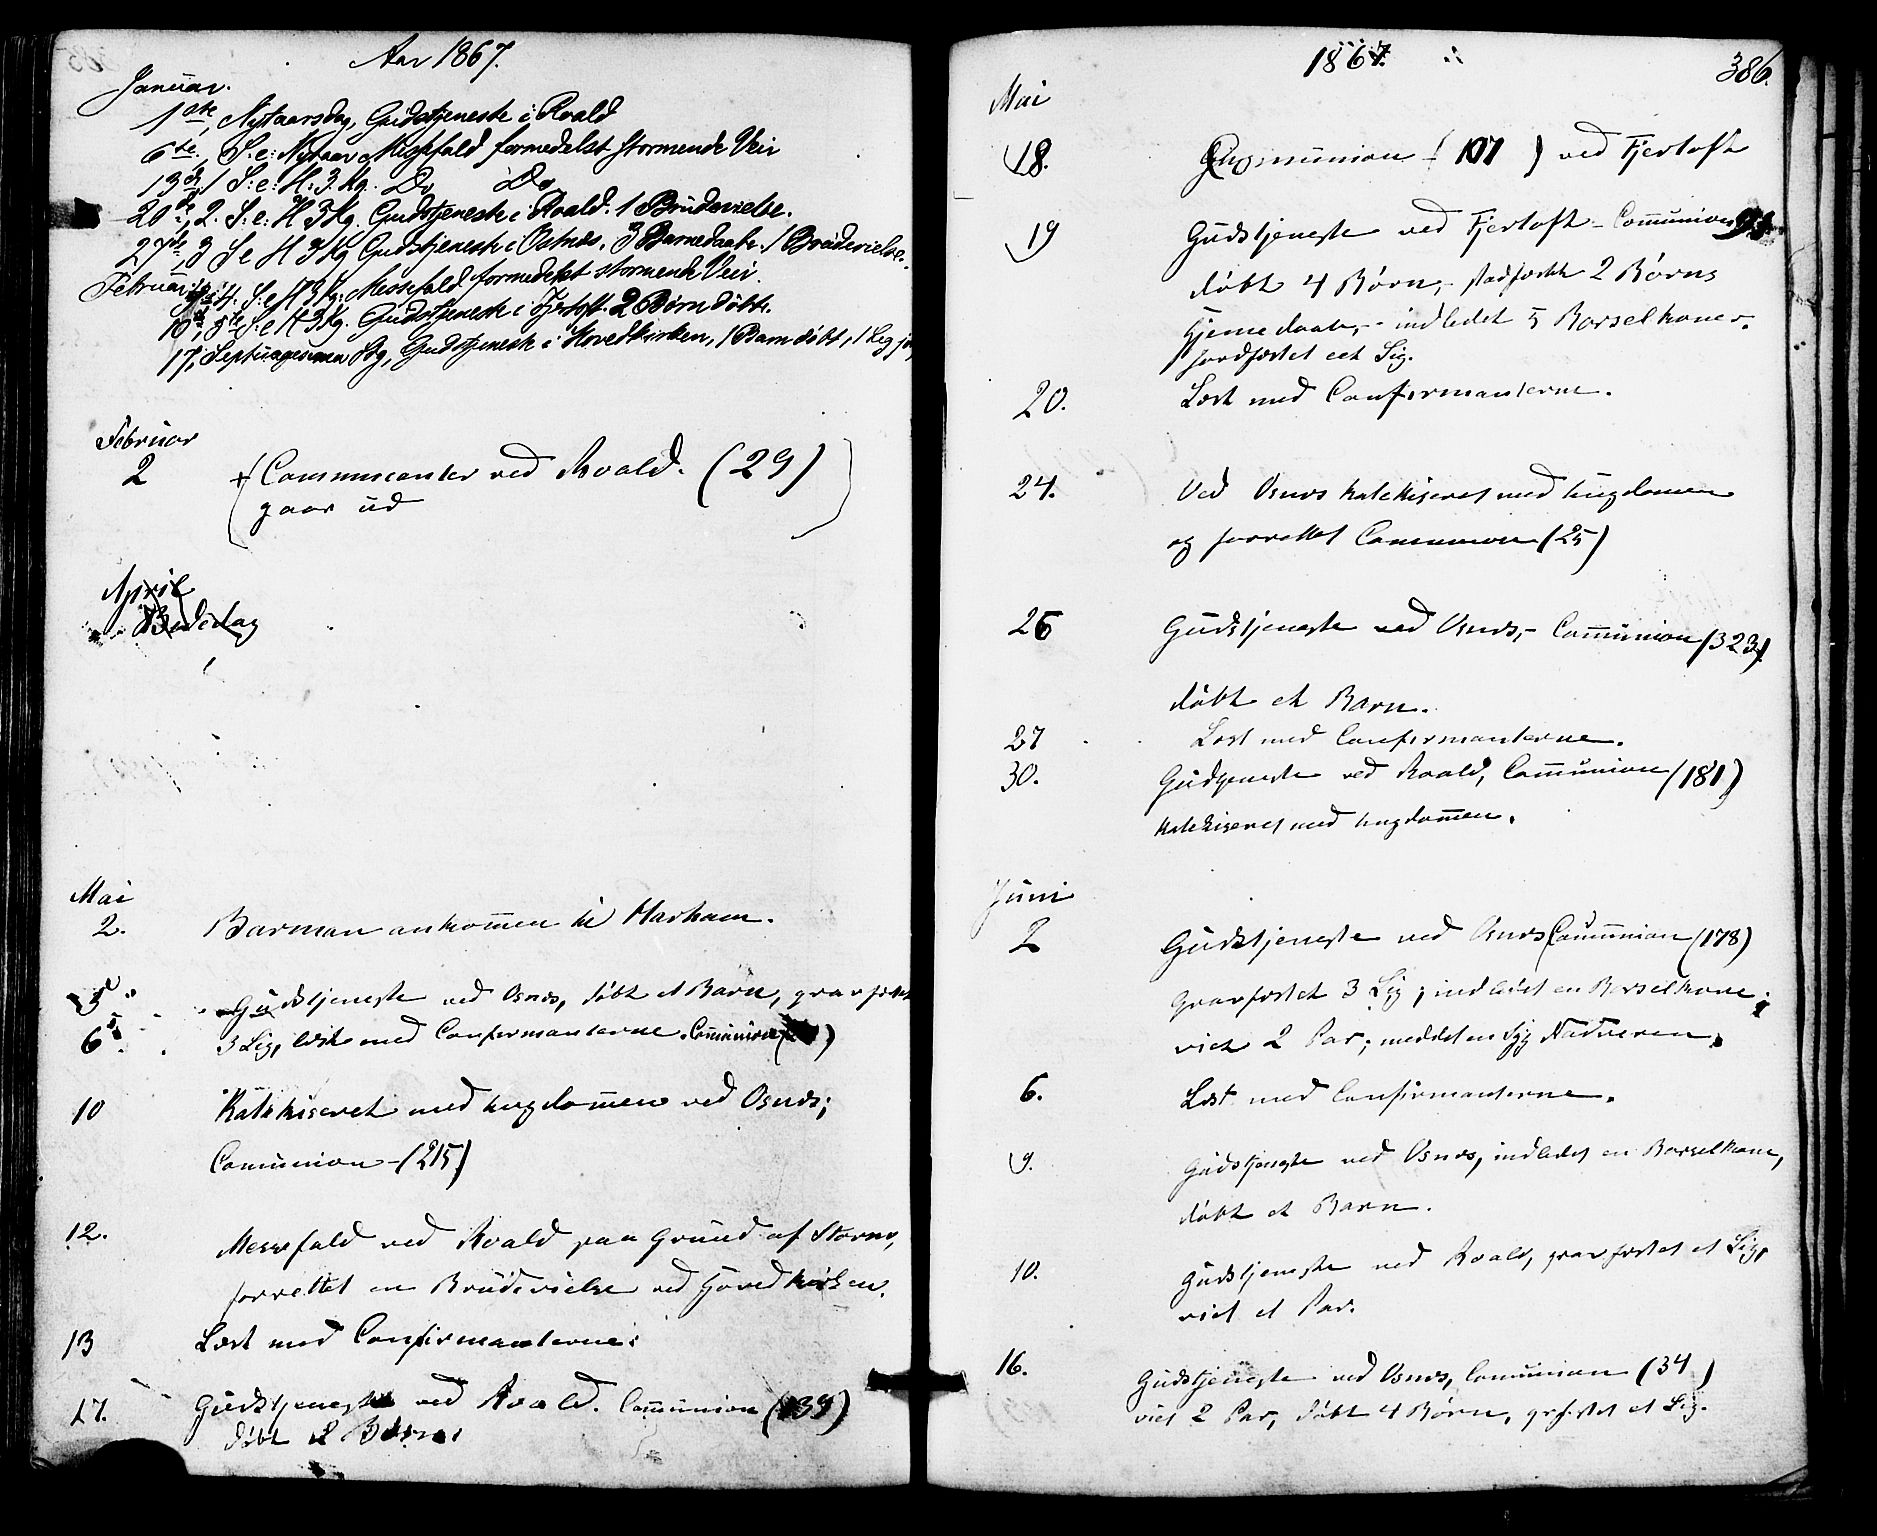 Aar 1867.
Januar.
1ste, Nytaarsdag, Gudstjeneste i Roald
6te, S: e: Nytaar, Messefald formedelst stormende Veir
13de, 1 S: e: H: 3. Kg. Do Do
20de, 2. S: e: H 3 Kg. Gudstjeneste i Roald. 1 Brudevielse.
27de, 3 S e H 3 Kg Gudstjeneste i Østnæs, 3 Barnedaabe. 1 Brudevielse.
Februar: 4. S: e H 3 Kg: Messefald formedelst stormende Veir.
10de, 5te S. e H 3 Kg. Gudstjeneste i Fjertoft. 2 Børn døbte.
17, Septuagesima Sdg, Gudstjeneste i Hovedkirken, 1 Barn døbt, 1 Leg
Februar
2 Communicanter ved Roald. (29)
gaar ud
April
Bededag
Mai
2. Barman ankommen til Harham.
5 Gudstjeneste ved Osnæs, døbt et Barn, gravfæstet
6. 3 Lig, læst med Confirmanterne. Communion
10 Katekiseret med Ungdommen ved Osnæs;
Communion - (215)
12. Messefald ved Roald paa Grund af Storm,
forrettet en Brudevielse ved Hovedkirken.
13 Læst med Confirmanterne.
17. Gudstjeneste ved Roald. Communion (139)
døbt 2 Børn
1867.
386.
Mai
18. Communion (107) ved Fjertoft
19 Gudstjeneste ved Fjertoft - Communion 93
døbt 4 Børn, stadfæstet 2 Børns
Hjemmedaab, - indledet 5 Barselkoner.
jordfæstet eet Lig.
20. Læst med Confirmanterne.
24. Ved Osnæs katekiseret med Ungdommen
og forrettet Communion (25)
26 Gudstjeneste ved Osnæs, - Communion (323)
døbt et Barn.
27 Læst med Confirmanterne.
30. Gudtjeneste ved Roald, Communion (181)
katekiseret med Ungdommen.
Juni
2 Gudstjeneste ved Osnæs Communion (178)
Gravfæstet 3 Lig; indledet en Barselkone;
viet 2 Par; meddelt en Syg Nadveren.
6. Læst med Confirmanterne.
9. Gudstjeneste ved Osnæs, indledet en Barselkone,
døbt et Barn.
10. Gudstjeneste ved Roald, gravfæstet et Lig,
viet et Par.
16. Gudstjeneste ved Osnæs, Communion (34)
viet 2 Par, døbt 4 Børn, grfæstet et Lig.